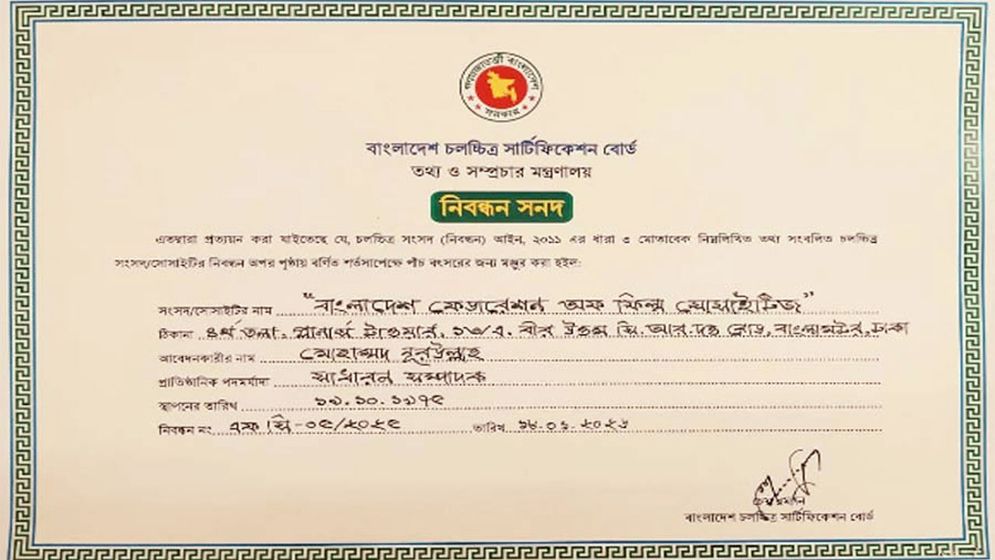 গণপ্রজাতন্ত্রী বাংলাদেশ
সরকার
বাংলাদেশ চলচ্চিত্র সার্টিফিকেশন বোর্ড
তথ্য ও সম্প্রচার মন্ত্রণালয়
নিবন্ধন সনদ
এতদ্বারা প্রত্যয়ন করা যাইতেছে যে, চলচ্চিত্র সংসদ (নিবন্ধন) আইন, ২০১১ এর ধারা ৩ মোতাবেক নিম্নলিখিত তথ্য সংবলিত চলচ্চিত্র
সংসদ/সোসাইটির নিবন্ধন অপর পৃষ্ঠায় বর্ণিত শর্তসাপেক্ষে পাঁচ বৎসরের জন্য মঞ্জুর করা হইল:
সংসদ/সোসাইটির নাম "বাংলাদেশ ফেডারেশন অফ ফিল্ম সোসাইটিজ"
ঠিকানা ৪র্থ তলা, প্লানার্স টাওয়ার, ১৩/এ, বীর উত্তম সি.আর.দত্ত রোড, বাংলামটর, ঢাকা
আবেদনকারীর নাম মোহাম্মদ নূরউল্লাহ
প্রাতিষ্ঠানিক পদমর্যাদা সাধারন সম্পাদক
স্থাপনের তারিখ ১৯.১০.১৯৭৫
নিবন্ধন নং এফ সি-০৫/২০২৫ তারিখ ১৮.০১.২০২৬
বাংলাদেশ চলচ্চিত্র সার্টিফিকেশন বোর্ড